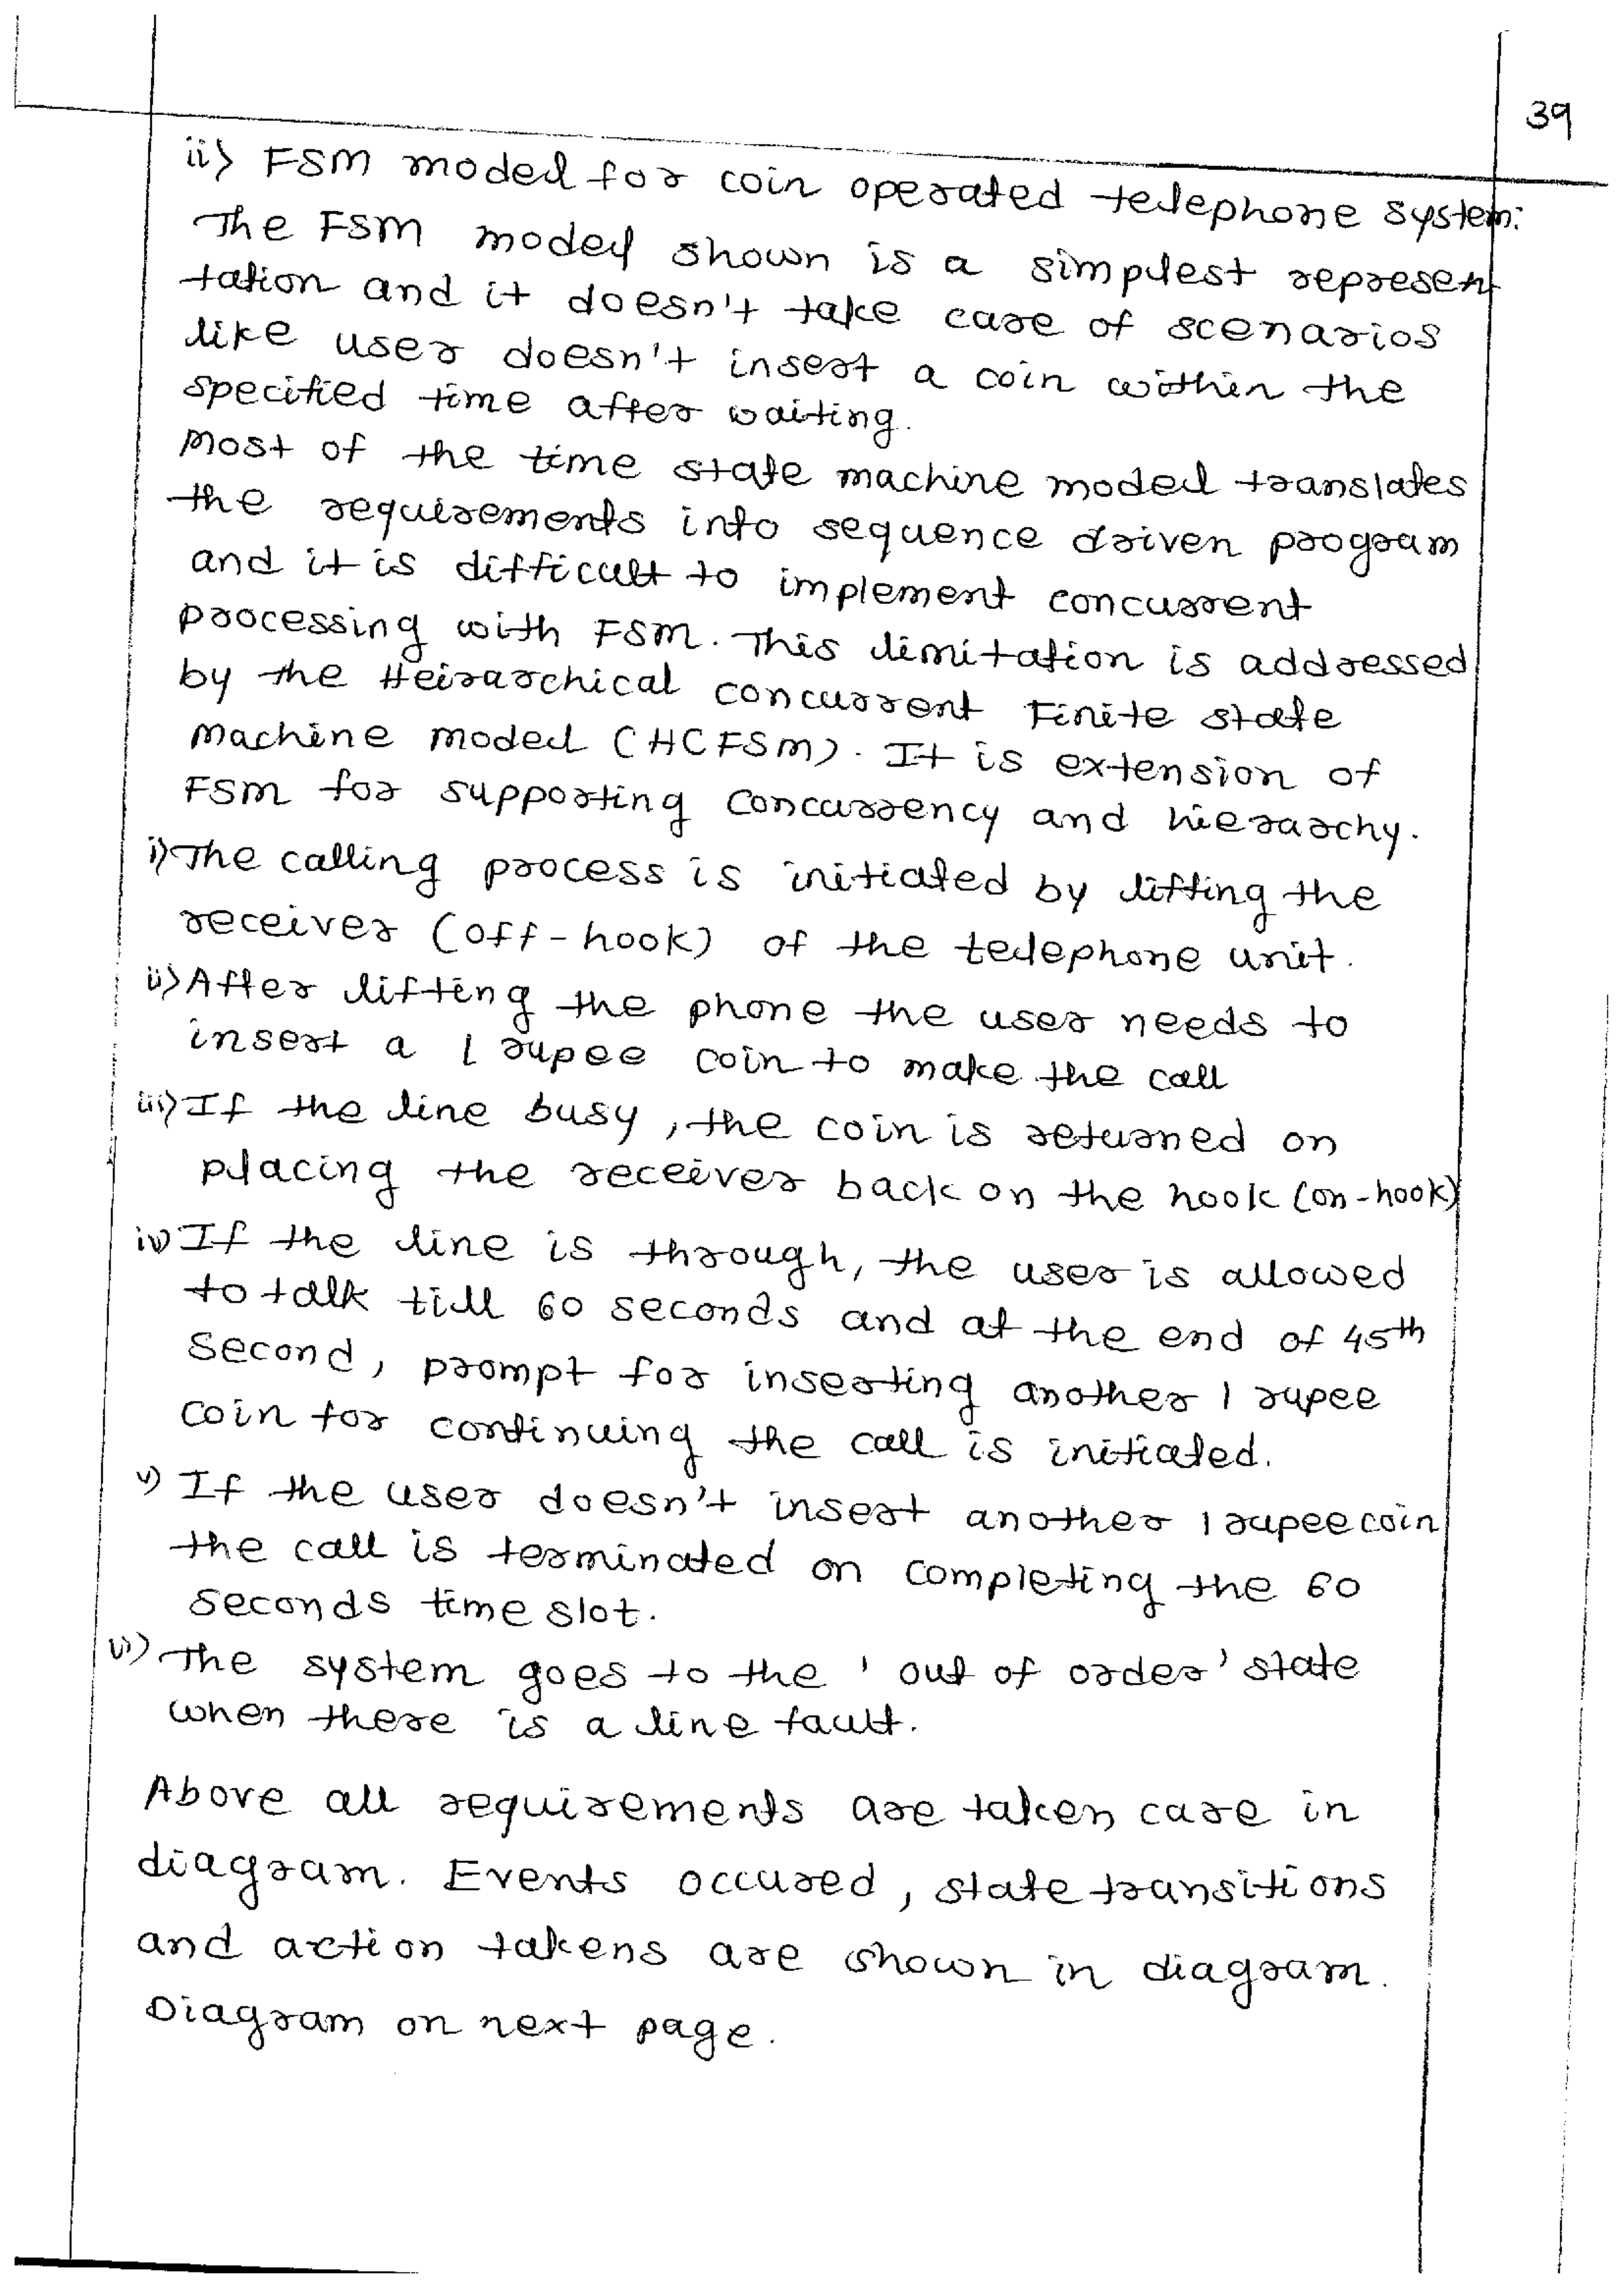 39
ii) FSM model for coin operated telephone system:
The FSM model shown is a simplest represen
tation and it doesn't take care of scenarios
like user doesn't insert a coin within the
specified time after waiting.
Most of the time state machine model translates
the requirements into sequence driven program
and it is difficult to implement concurrent
processing with FSM. This limitation is addressed
by the Heirarchical concurrent Finite state
Machine model (HCFSM). It is extension of
FSM for supporting concurrency and hierarchy.
i) The calling process is initiated by lifting the
receiver (off-hook) of the telephone unit.
ii) After lifting the phone the user needs to
insert a 1 rupee coin to make the call
iii) If the line busy, the coin is returned on
placing the receiver back on the hook (on-hook)
iv) If the line is through, the user is allowed
to talk till 60 seconds and at the end of 45th
second, prompt for inserting another 1 rupee
coin for continuing the call is initiated.
v) If the user doesn't insert another 1 rupee coin
the call is terminated on completing the 60
seconds time slot.
vi) The system goes to the 'out of order' state
when there is a line fault.
Above all requirements are taken care in
diagram. Events occured, state transitions
and action takens are shown in diagram.
Diagram on next page.